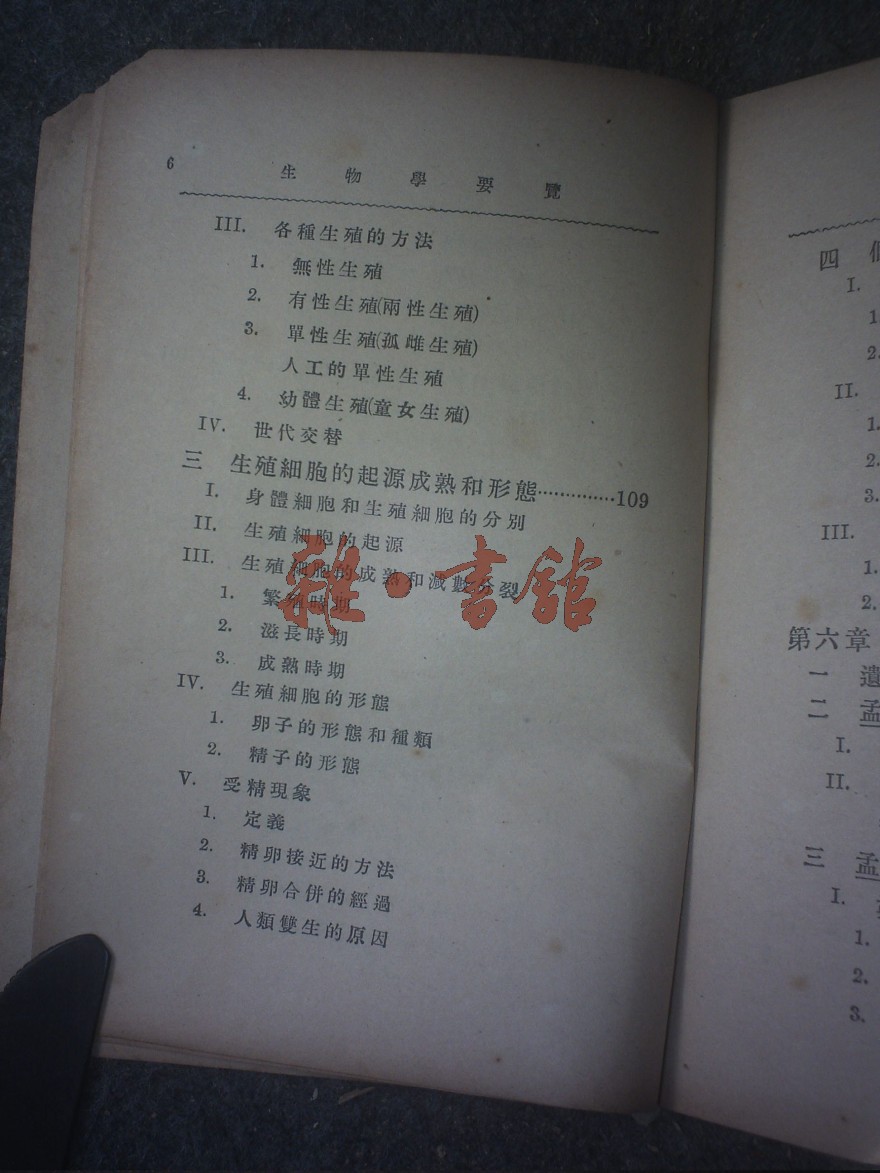 6 生物學要覽
III. 各種生殖的方法
1. 無性生殖
2. 有性生殖(兩性生殖)
3. 單性生殖(孤雌生殖)
人工的單性生殖
4. 幼體生殖(童女生殖)
IV. 世代交替
三 生殖細胞的起源成熟和形態··············109
I. 身體細胞和生殖細胞的分別
II. 生殖細胞的起源
III. 生殖細胞的成熟和減數分裂
1. 繁殖時期
2. 滋長時期
3. 成熟時期
IV. 生殖細胞的形態
1. 卵子的形態和種類
2. 精子的形態
V. 受精現象
1. 定義
2. 精卵接近的方法
3. 精卵合併的經過
4. 人類雙生的原因
雜·書館
四
I.
1.
2.
II.
1.
2.
3.
III.
1.
2.
第六章
一 遺
二 孟
I.
II.
三 孟
I.
1.
2.
3.